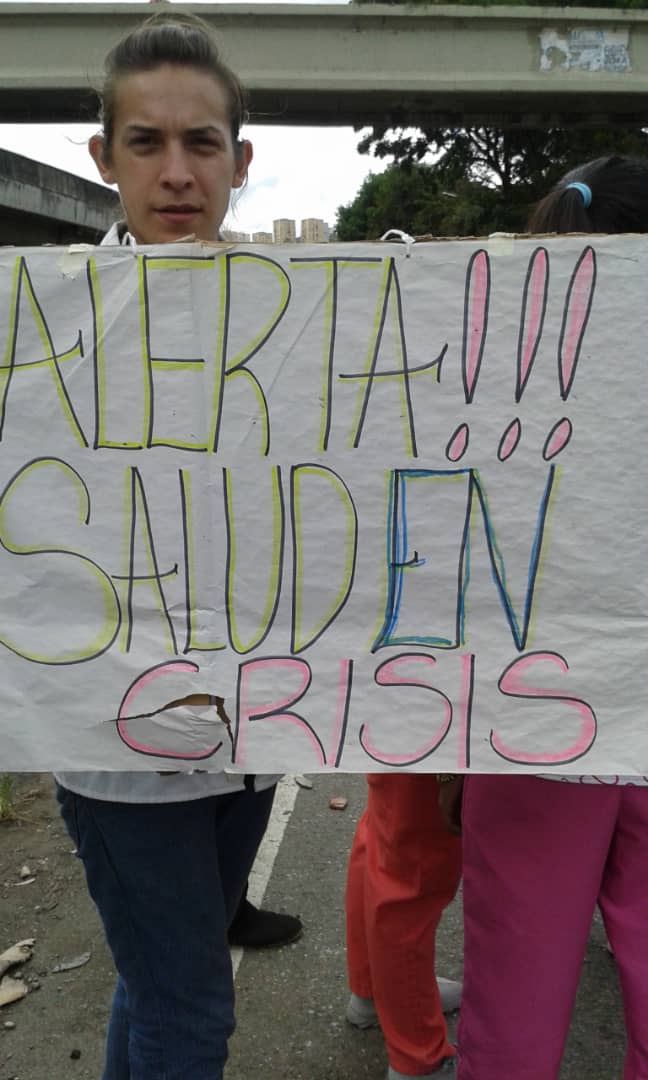 ALERTA!!!
SALUD EN
CRISIS